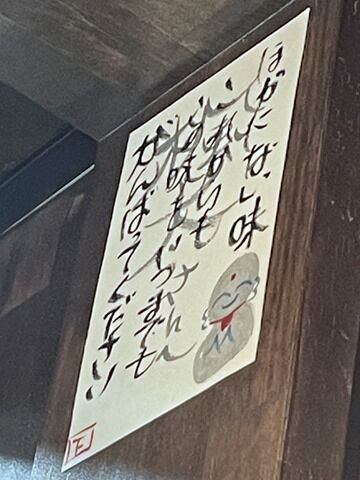 ほかにない味
これからも
この味をいつまでも
がんばってください